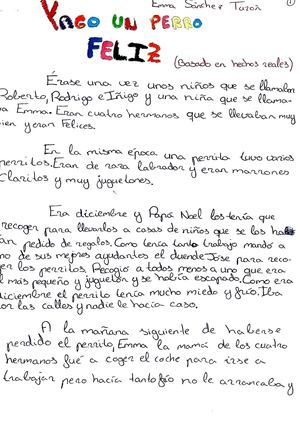 Emma Sánchez Tazón ①
YAGO UN PERRO
FELIZ
(Basado en hechos reales)
Érase una vez unos niños que se llamaban
Roberto, Rodrigo e Iñigo y una niña que se llama-
ba Emma. Eran cuatro hermanos que se llevaban muy
bien y eran felices.
En la misma época una perrita tuvo varios
perritos. Eran de raza labrador y eran marrones
claritos y muy juguetones.
Era diciembre y Papá Noel los tenía que
recoger para llevarlos a casas de niños que se los ha
an pedido de regalos. Como tenía tanto trabajo mandó a
no de sus mejores ayudantes el duende Jose para reco-
er los perritos. Recogió a todos menos a uno que era
l más pequeño y juguetón y se había escapado. Como era
diciembre el perrito tenía mucho miedo y frío. Iba
or las calles y nadie le hacía caso.
A la mañana siguiente de haberse
perdido el perrito, Emma la mamá de los cuatro
hermanos fué a coger el coche para irse a
trabajar pero hacía tanto frío no le arrancaba y